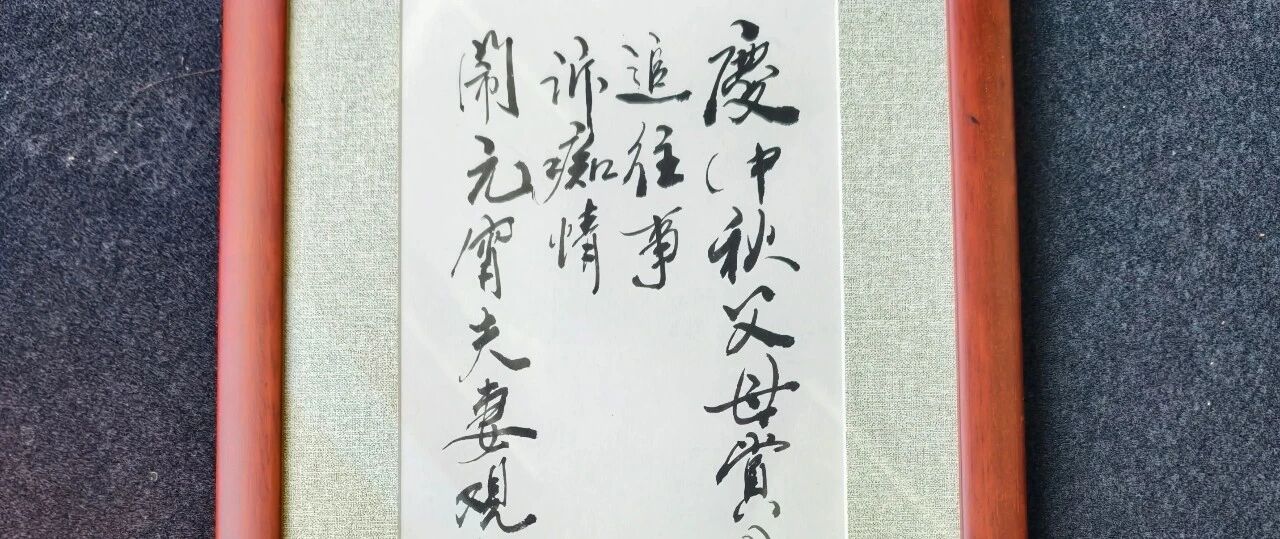 慶中秋父母賞
追往事
訴痴情
鬧元宵夫妻觀